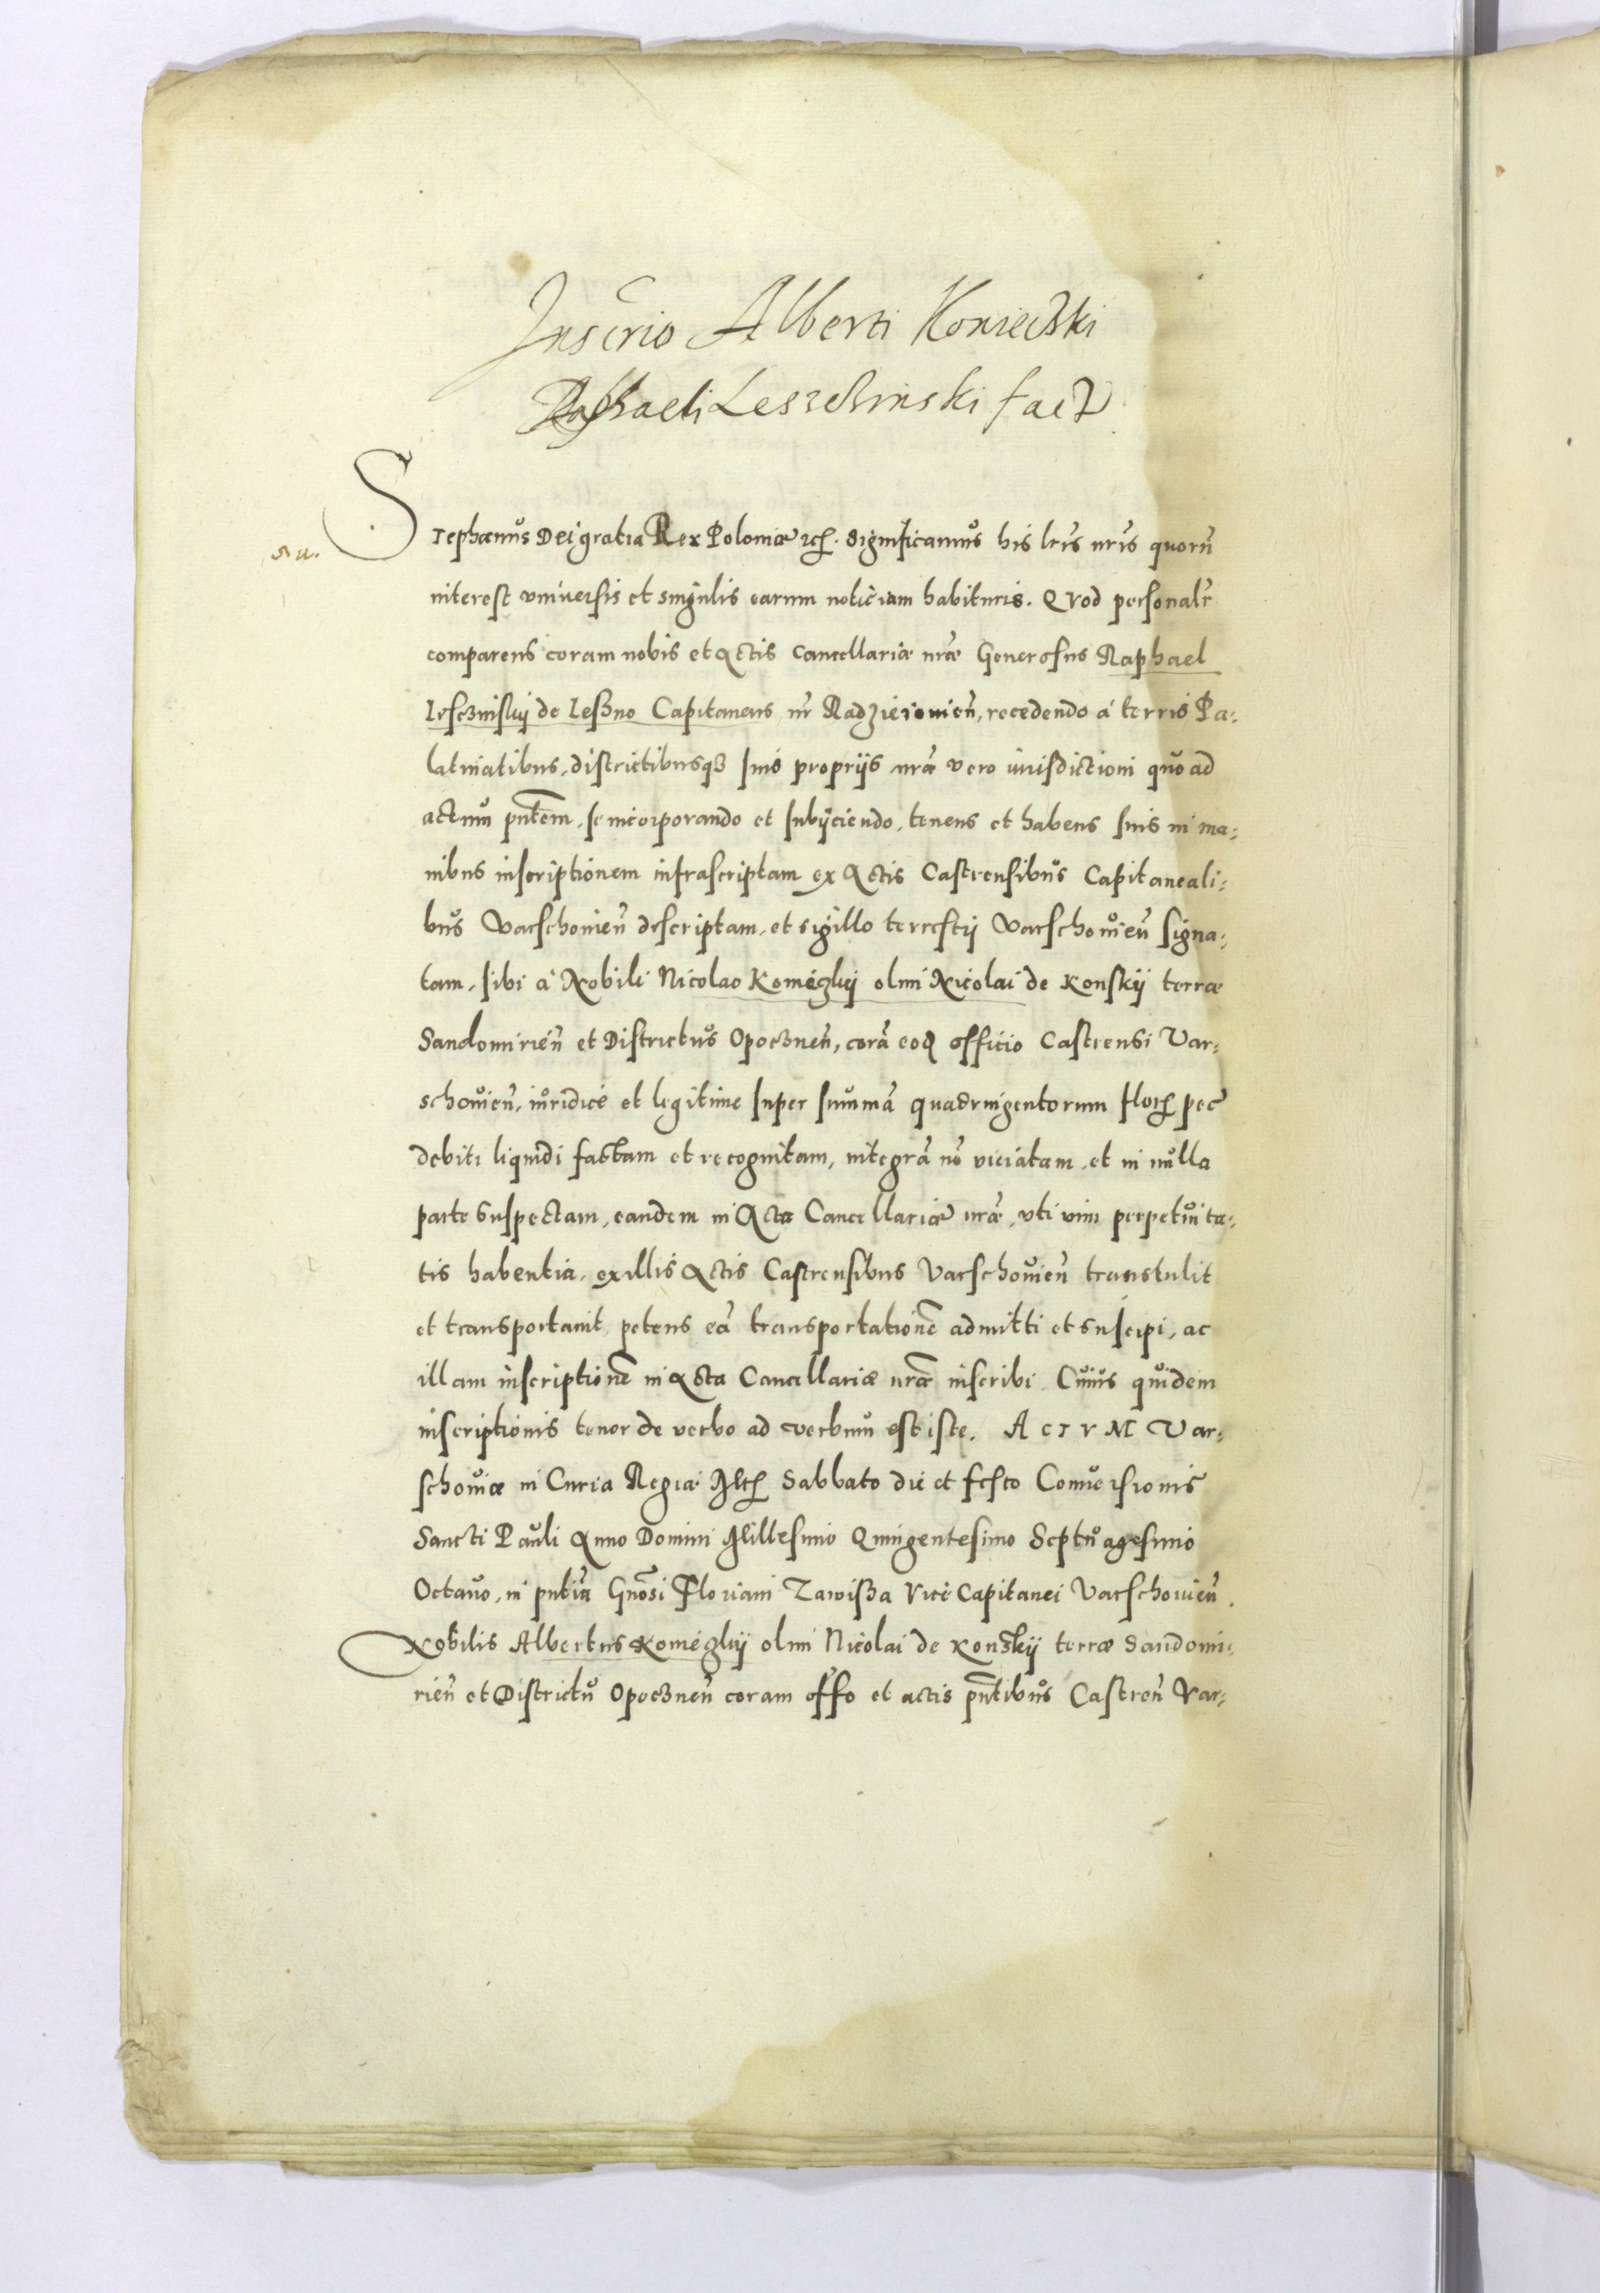 Inscrio Alberti Konieczki
Raphaeli Leszczinski fact
Stephanus Dei gratia Rex Poloniæ etc. Significamus his lris nris quorũ
interest vniuersis et singulis earum noticiam habituris. Qvod personalr
comparens coram nobis et Actis Cancellariæ nræ Generosus Raphael
Lesczinskij de Leszno Capitaneus nr Radzieiouieñ, recedendo á terris Pa-
latinatibus, districtibusqz suis proprijs nræ vero iurisdictioni quo ad
actum pntem, se incorporando et subijciendo, tenens et habens suis in ma-
nibus inscriptionem infrascriptam ex Actis Castrensibus Capitaneali-
bus Varschouieñ descriptam, et sigillo terrestij Varschouieñ signa-
tam, sibi á Nobili Nicolao Koniéczkij olim Nicolai de Konskij terræ
Sandomirieñ et Districtus Opoczneñ, corã eod officio Castrensi Var-
schouieñ, iuridicé et legitime super summã quadringentorum flor pec
debiti liquidi factam et recognitam, integrã nõ viciatam, et in nulla
parte suspectam, eandem in Acta Cancellariæ nræ, vti vim perpetuita-
tis habentia, ex illis Actis Castrensibus Varschouieñ transtulit
et transportauit, petens eã transportationẽ admitti et suscipi, ac
illam inscriptionẽ in Acta Cancellariæ nræ inscribi. Cuius quidem
inscriptionis tenor de verbo ad verbum est iste. ACTVM Var-
schouiæ in Curia Regia Sabbato die et festo Conuersionis
Sancti Pauli Anno Domini Millesimo Quingentesimo Septuagesimo
Octauo, in pntia Gnosi Floriani Zawisza Vice Capitanei Varschouieñ.
Nobilis Albertus Koniéczkij olim Nicolai de Konskij terræ Sandomi-
rieñ et Districtũ Opoczneñ coram offo et actis pntibus Castreñ Var-